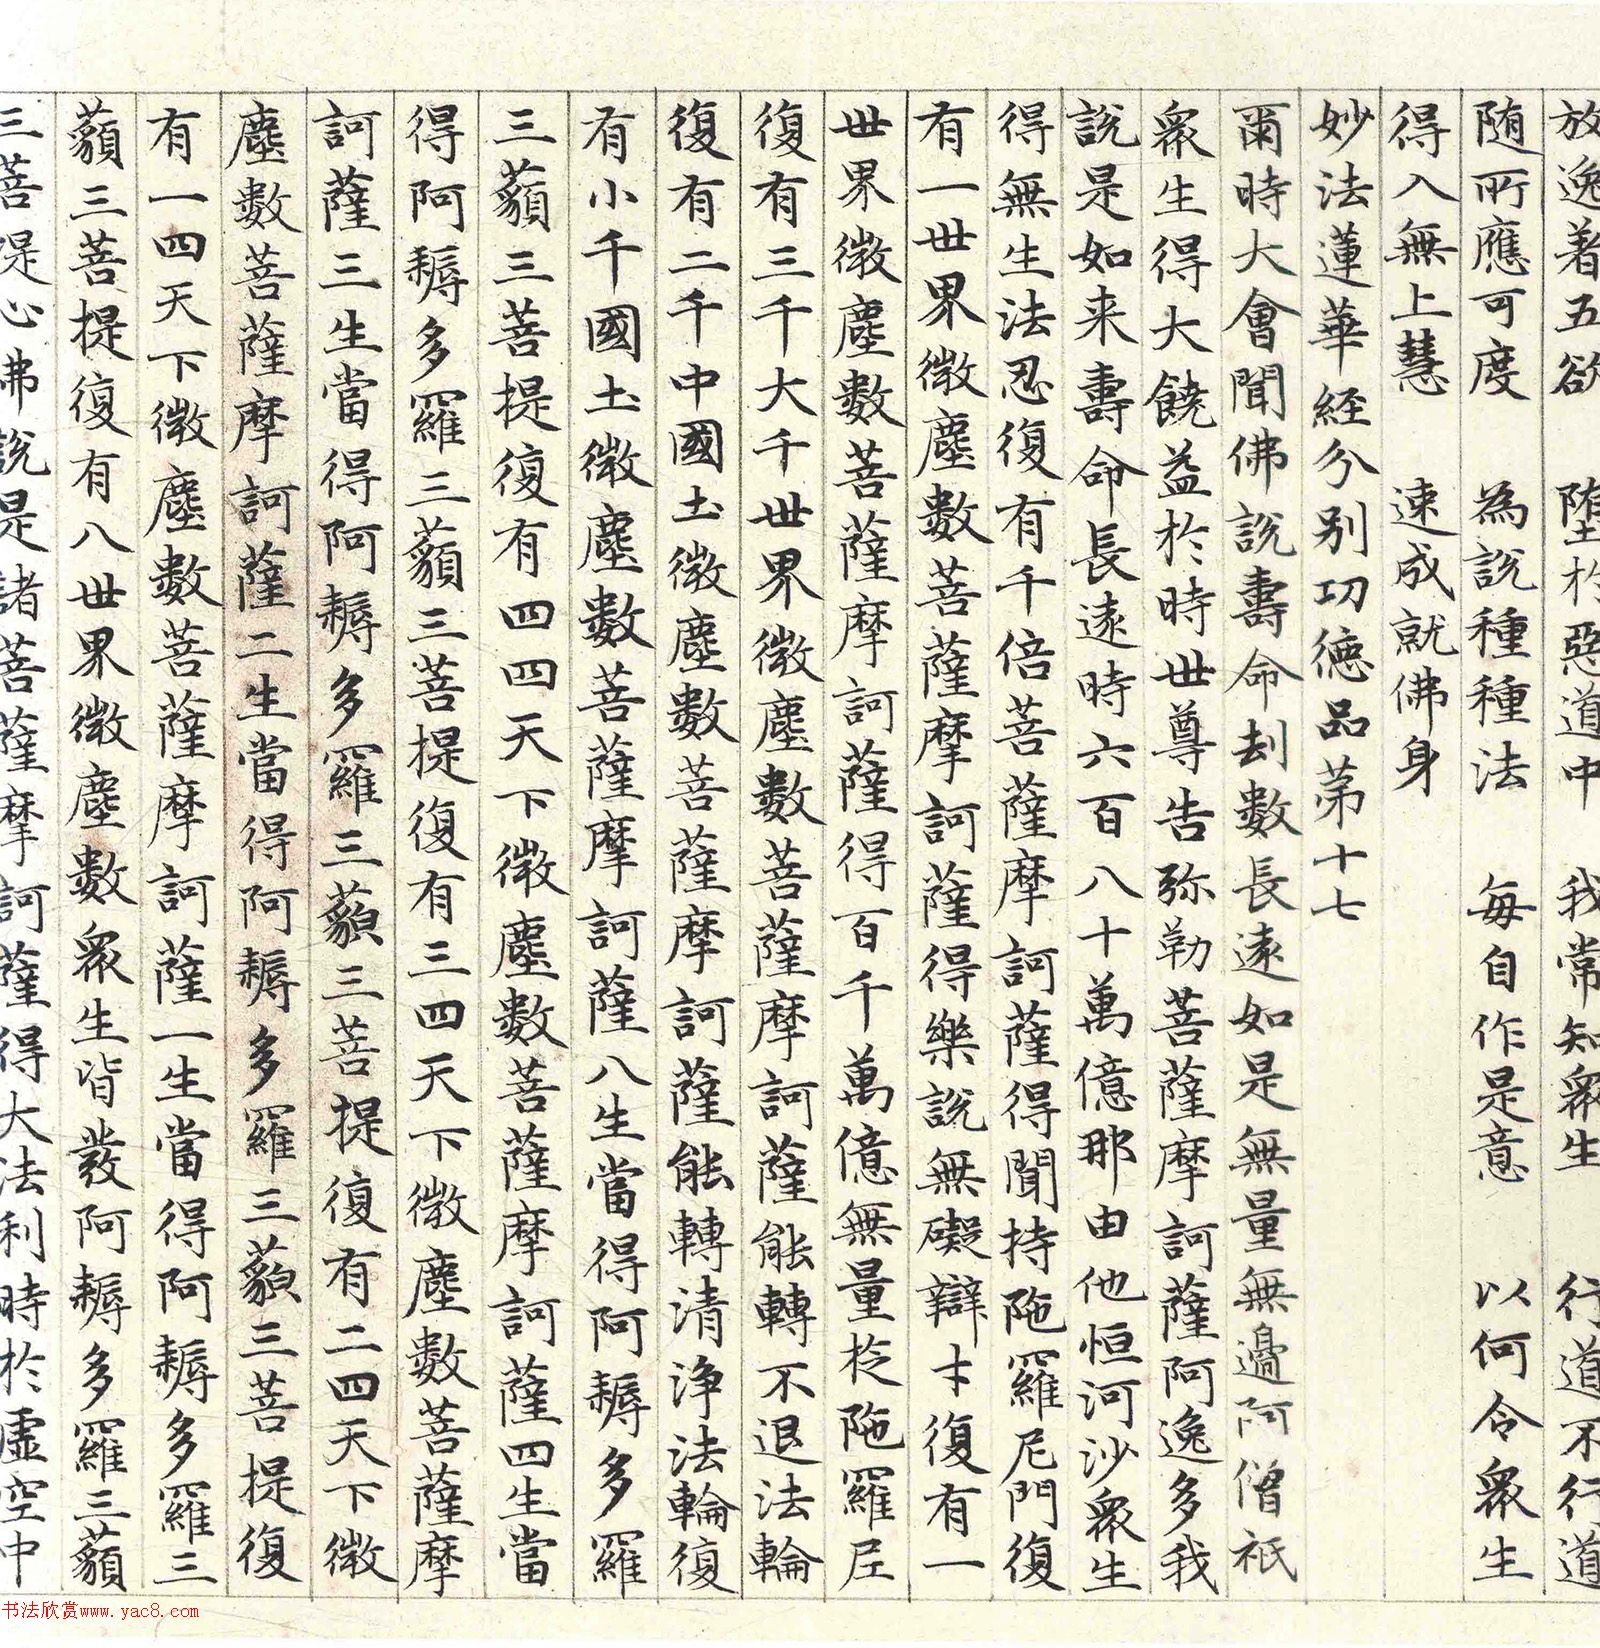 放逸著五欲　墮於惡道中　我常知眾生　行道不行道
随所應可度　為說種種法　每自作是意　以何令眾生
得入無上慧　速成就佛身
妙法蓮華經分別功德品苐十七
爾時大會聞佛說壽命劫數長遠如是無量無邊阿僧祇
眾生得大饒益於時世尊告弥勒菩薩摩訶薩阿逸多我
說是如来壽命長遠時六百八十萬億那由他恒河沙眾生
得無生法忍復有千倍菩薩摩訶薩得聞持陁羅尼門復
有一世界微塵數菩薩摩訶薩得樂說無礙辯才復有一
世界微塵數菩薩摩訶薩得百千萬億無量㨄陁羅尼
復有三千大千世界微塵數菩薩摩訶薩能轉不退法輪
復有二千中國土微塵數菩薩摩訶薩能轉清淨法輪復
有小千國土微塵數菩薩摩訶薩八生當得阿耨多羅
三藐三菩提復有四四天下微塵數菩薩摩訶薩四生當
得阿耨多羅三藐三菩提復有三四天下微塵數菩薩摩
訶薩三生當得阿耨多羅三藐三菩提復有二四天下微
塵數菩薩摩訶薩二生當得阿耨多羅三藐三菩提復
有一四天下微塵數菩薩摩訶薩一生當得阿耨多羅三
藐三菩提復有八世界微塵數眾生皆發阿耨多羅三藐
三菩提心佛說是諸菩薩摩訶薩得大法利時於虛空中
书法欣赏www.yac8.com